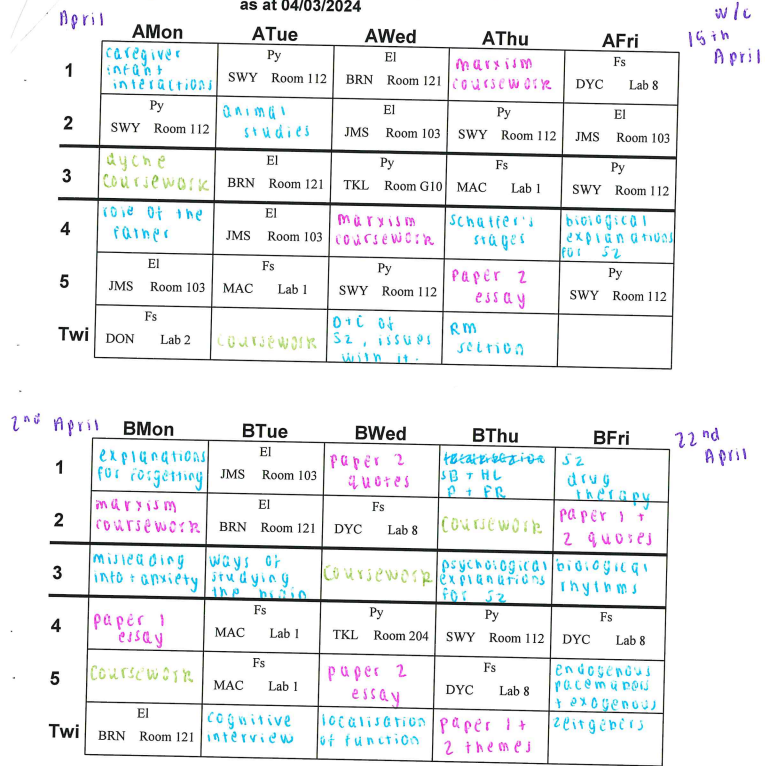 as at 04/03/2024
April
w/c
15th
April
AMon ATue AWed AThu AFri
1
caregiver
infant
interactions
Py
SWY Room 112
El
BRN Room 121
marxism
coursework
Fs
DYC Lab 8
2
Py
SWY Room 112
animal
studies
El
JMS Room 103
Py
SWY Room 112
El
JMS Room 103
3
dyche
coursework
El
BRN Room 121
Py
TKL Room G10
Fs
MAC Lab 1
Py
SWY Room 112
4
role of the
father
El
JMS Room 103
marxism
coursework
schaffer's
stages
biological
explanations
for SZ
5
El
JMS Room 103
Fs
MAC Lab 1
Py
SWY Room 112
paper 2
essay
Py
SWY Room 112
Twi
Fs
DON Lab 2
coursework
D+C of
SZ, issues
with it.
RM
section
2nd April
22nd
April
BMon BTue BWed BThu BFri
1
explanations
for forgetting
El
JMS Room 103
paper 2
quotes
SB + HL
P + FR
SZ
drug
therapy
2
marxism
coursework
El
BRN Room 121
Fs
DYC Lab 8
coursework
paper 1 +
2 quotes
3
misleading
info + anxiety
ways of
studying
the brain
coursework
psychological
explanations
for SZ
biological
rhythms
4
paper 1
essay
Fs
MAC Lab 1
Py
TKL Room 204
Py
SWY Room 112
Fs
DYC Lab 8
5
coursework
Fs
MAC Lab 1
paper 2
essay
Fs
DYC Lab 8
endogenous
pacemakers
+ exogenous
Twi
El
BRN Room 121
cognitive
interview
localisation
of function
paper 1 +
2 themes
zeitgebers